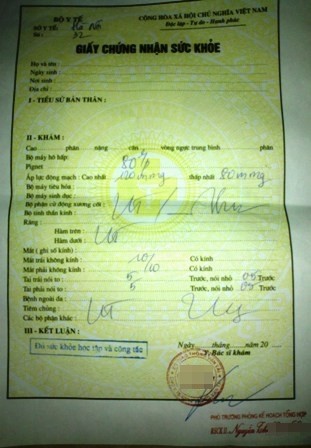 BỘ Y TẾ
SỞ Y TẾ: Hà Nội
Số: 32
CỘNG HÒA XÃ HỘI CHỦ NGHĨA VIỆT NAM
Độc lập - Tự do - Hạnh phúc
GIẤY CHỨNG NHẬN SỨC KHỎE
Họ và tên :
Ngày sinh :
Nơi sinh :
Địa chỉ :
I - TIỂU SỬ BẢN THÂN :
II - KHÁM :
Cao phân nặng cân vòng ngực trung bình phân
Bộ máy hô hấp:
Pignet 80
Áp lực động mạch : Cao nhất 120 mmg thấp nhất 80 mmg
Bộ máy tiêu hóa :
Bộ máy sinh dục:
Bộ phận cử động xương cốt :
Bộ tinh thần kinh :
Răng :
Hàm trên :
Hàm dưới :
Mắt ( ghi số kính)
Mắt trái không kính : 10/10 Có kính
Mắt phải không kính : Có kính
Tai trái nói to : 5 Trước, nói nhỏ 05 Trước
Tai phải nói to : 5 Trước, nói nhỏ 05 Trước
Bệnh ngoài da :
Tiêm chủng :
Các bộ phận khác :
III - KẾT LUẬN :
Đủ sức khỏe học tập và công tác
Ngày tháng năm 20
Y. Bác sĩ khám
PHÓ TRƯỞNG PHÒNG KẾ HOẠCH TỔNG HỢP
Nguyễn Thị